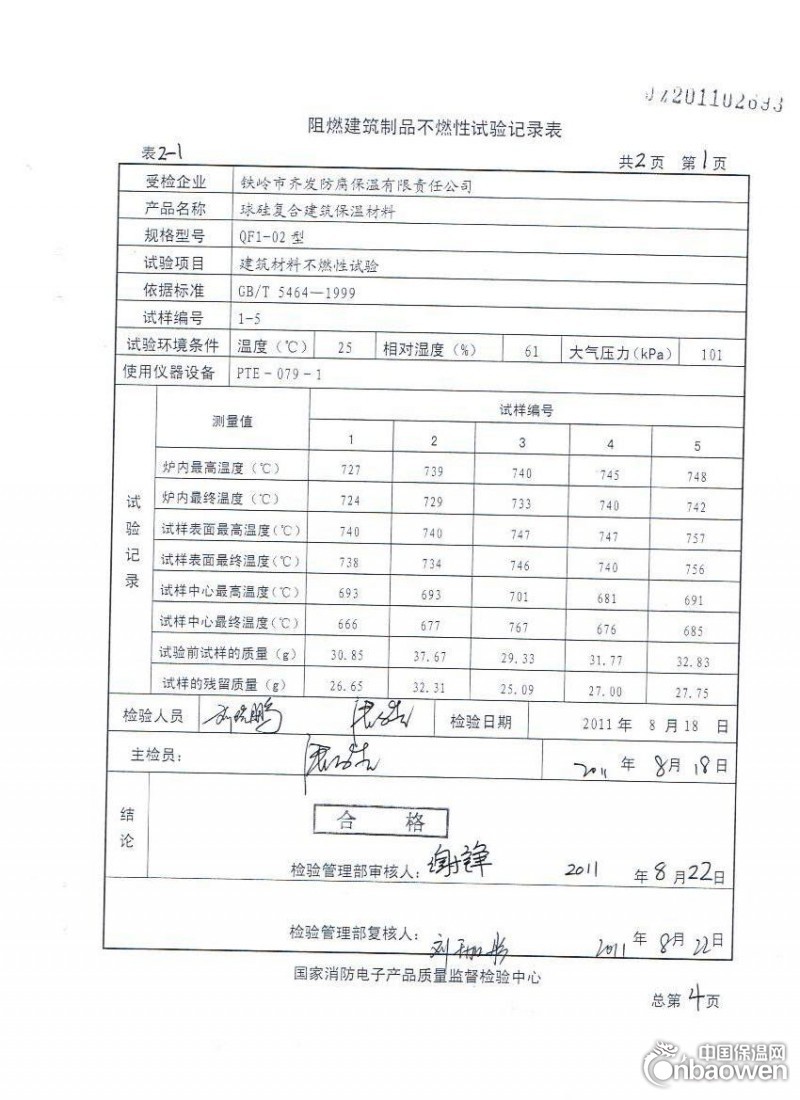 JZ201102693
阻燃建筑制品不燃性试验记录表
表2-1 共2页 第1页
受检企业 铁岭市齐发防腐保温有限责任公司
产品名称 球硅复合建筑保温材料
规格型号 QF1-02型
试验项目 建筑材料不燃性试验
依据标准 GB/T 5464—1999
试样编号 1-5
试验环境条件 温度(℃) 25 相对湿度(%) 61 大气压力(kPa) 101
使用仪器设备 PTE-079-1
试验记录 测量值 试样编号
1 2 3 4 5
炉内最高温度(℃) 727 739 740 745 748
炉内最终温度(℃) 724 729 733 740 742
试样表面最高温度(℃) 740 740 747 747 757
试样表面最终温度(℃) 738 734 746 740 756
试样中心最高温度(℃) 693 693 701 681 691
试样中心最终温度(℃) 666 677 767 676 685
试验前试样的质量(g) 30.85 37.67 29.33 31.77 32.83
试样的残留质量(g) 26.65 32.31 25.09 27.00 27.75
检验人员 检验日期 2011年 8月18日
主检员: 2011年 8月18日
结论 合格
检验管理部审核人: 2011年8月22日
检验管理部复核人: 2011年8月22日
国家消防电子产品质量监督检验中心
总第4页
中国保温网
cnbaowen